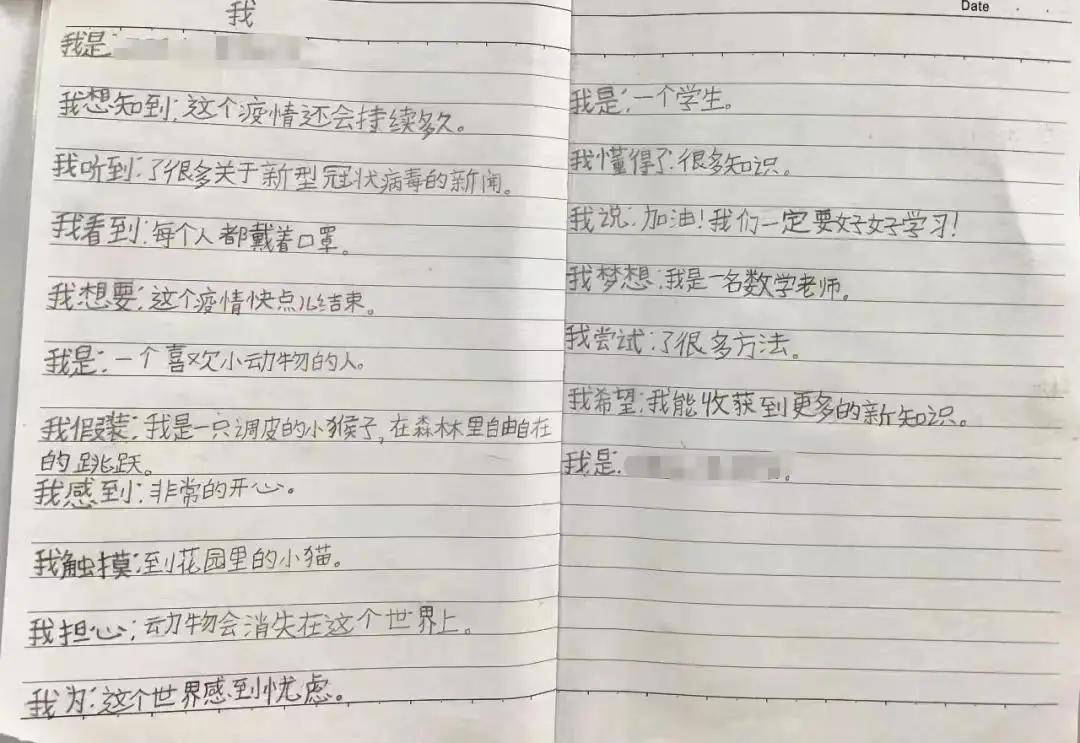 我
我是:
我想知到:这个疫情还会持续多久。
我听到:了很多关于新型冠状病毒的新闻。
我看到:每个人都戴着口罩。
我想要:这个疫情快点儿结束。
我是:一个喜欢小动物的人。
我假装:我是一只调皮的小猴子,在森林里自由自在
的跳跃。
我感到:非常的开心。
我触摸:到花园里的小猫。
我担心:动物会消失在这个世界上。
我为:这个世界感到忧虑。
Date
我是:一个学生。
我懂得了:很多知识。
我说:加油!我们一定要好好学习!
我梦想:我是一名数学老师。
我尝试:了很多方法。
我希望:我能收获到更多的新知识。
我是: 。